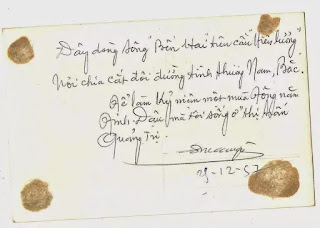 Đây dòng sông Bến Hải trên cầu Hiền Lương
Nơi chia cắt đôi đường tình thương Nam, Bắc.
Để làm kỷ niệm một mùa đông năm
Đinh Dậu mà tôi sống ở thị trấn
Quảng Trị.
-12-57